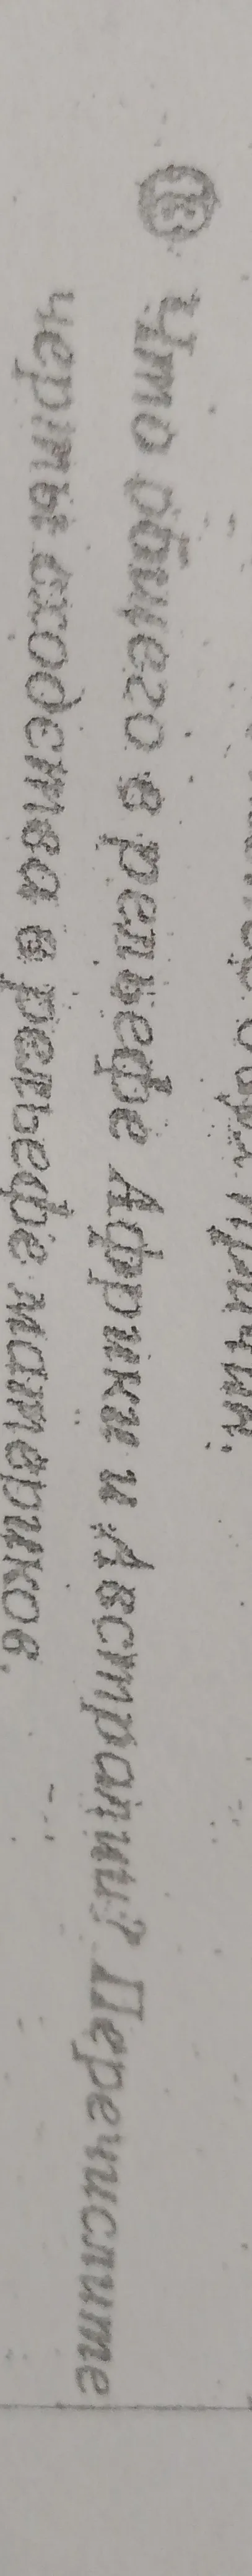 причин.
18 Что общего в рельефе Африки и Австралии? Перечислите
черты сходства в рельефе материков.